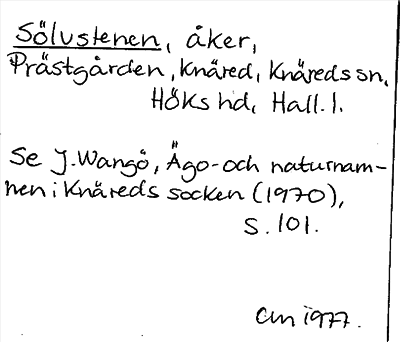 Sölvstenen, åker,
Prästgården, Knäred, Knäreds sn,
Höks hd, Hall. l.
Se J. Wangö, Ägo- och naturnam-
nen i Knäreds socken (1970),
s. 101.
CM 1977.